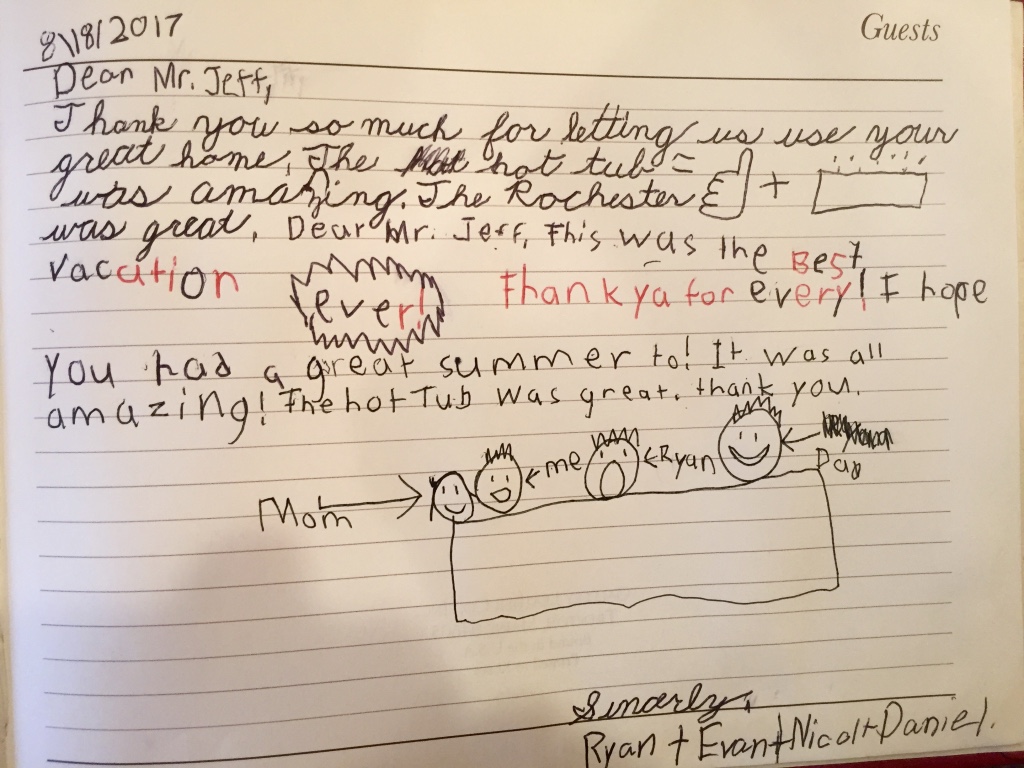 Guests
8/18/2017
Dear Mr. Jeff,
Thank you so much for letting us use your
great home, The hot tub =
was amazing. The Rochester +
was great. Dear Mr. Jeff, This was the BEST
vacation ever! Thank ya for every! I hope
you had a great summer to! It was all
amazing! The hot Tub was great. thank you.
Mom me Ryan Dad
Sincerly,
Ryan + Evan + Nicol + Daniel.